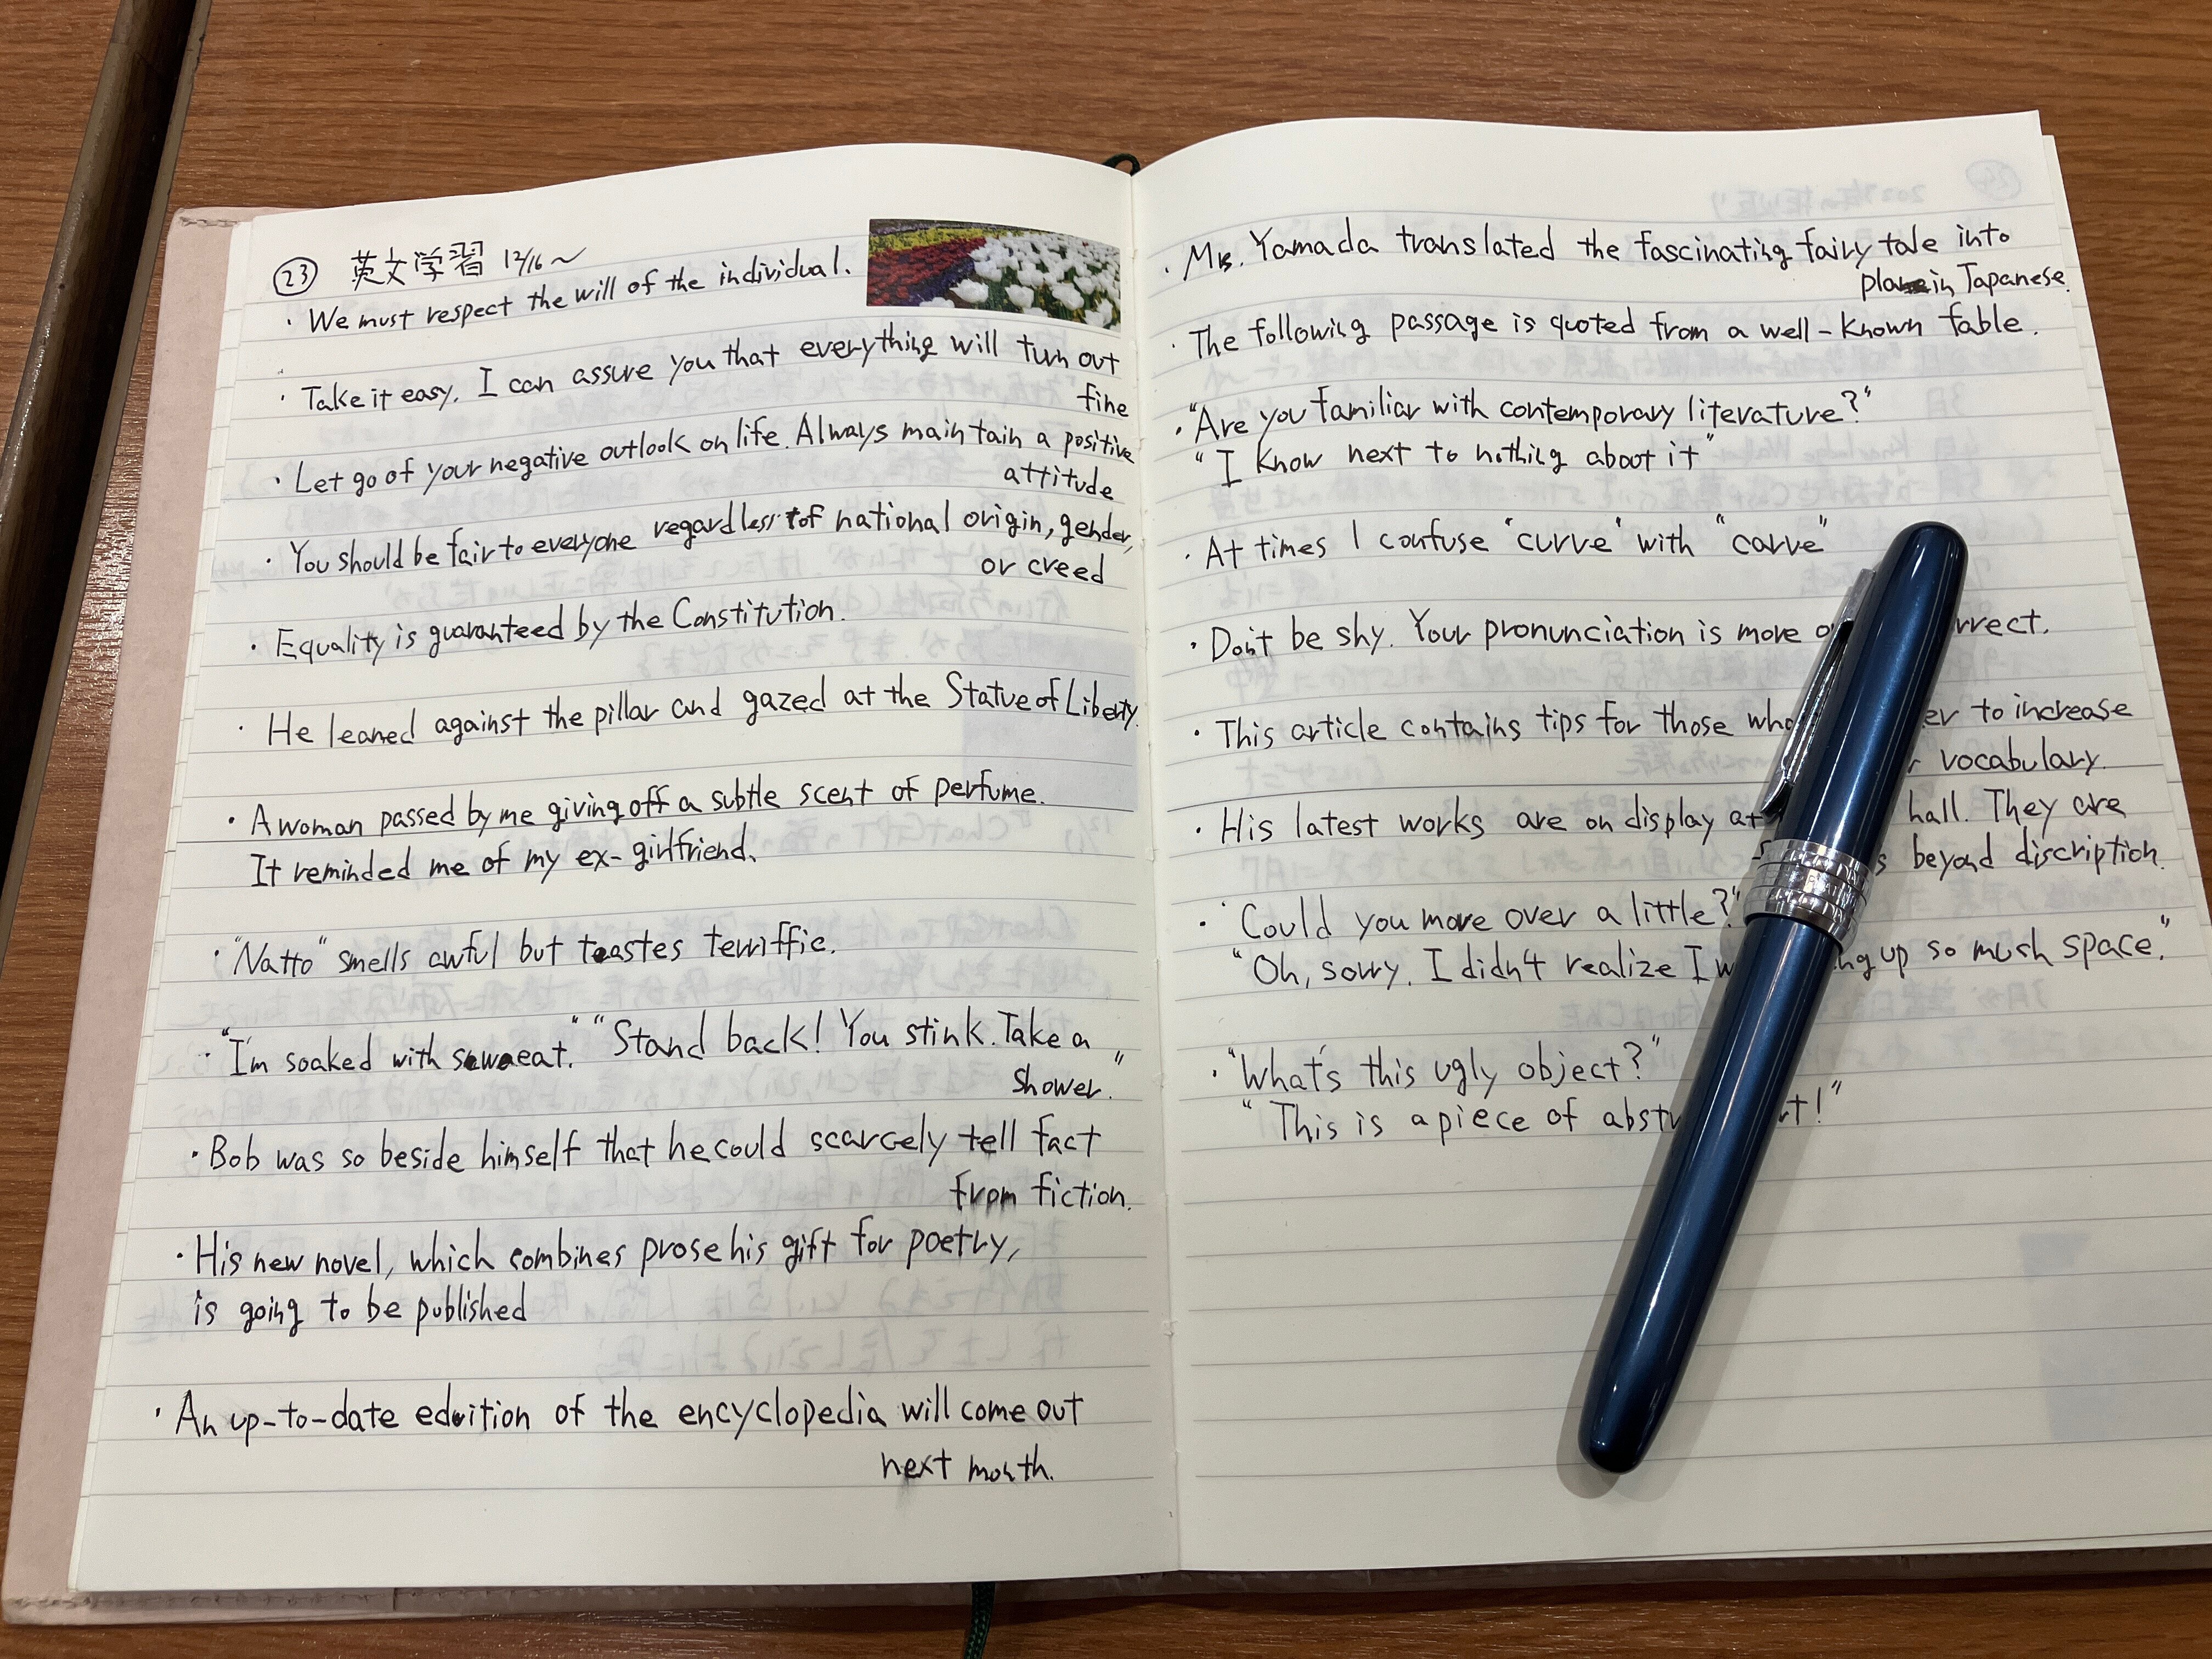 23 英文学習 12/16～
・We must respect the will of the individual.
・Take it easy. I can assure you that everything will turn out
fine
・Let go of your negative outlook on life. Always maintain a positive
attitude
・You should be fair to everyone regardless of national origin, gender,
or creed
・Equality is guaranteed by the Constitution.
・He leaned against the pillar and gazed at the Statue of Liberty.
・A woman passed by me giving off a subtle scent of perfume.
It reminded me of my ex-girlfriend.
・"Natto" smells awful but tastes terriffic.
・"I'm soaked with sweat." "Stand back! You stink. Take a
shower."
・Bob was so beside himself that he could scarcely tell fact
from fiction.
・His new novel, which combines prose his gift for poetry,
is going to be published
・An up-to-date edition of the encyclopedia will come out
next month.
・Mrs. Yamada translated the fascinating fairy tale into
plain Japanese.
・The following passage is quoted from a well-known fable.
・"Are you familiar with contemporary literature?"
"I know next to nothing about it"
・At times I confuse "curve" with "carve"
・Don't be shy. Your pronunciation is more rrect.
・This article contains tips for those who er to increase
vocabulary.
・His latest works are on display at hall. They are
s beyond discription.
・"Could you move over a little?"
"Oh, sorry. I didn't realize I ng up so much space."
・"What's this ugly object?"
"This is a piece of abst rt!"